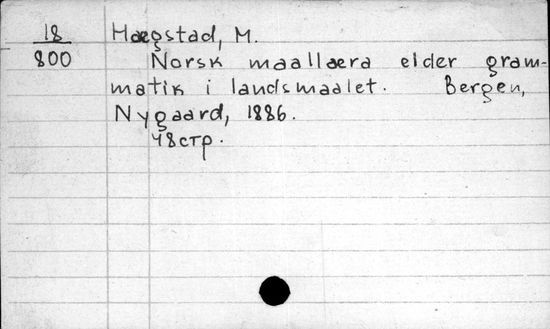 18 Haegstad, M.
800 Norsk maallaera elder gram-
matik i landsmaalet. Bergen,
Nygaard, 1886.
48стр.